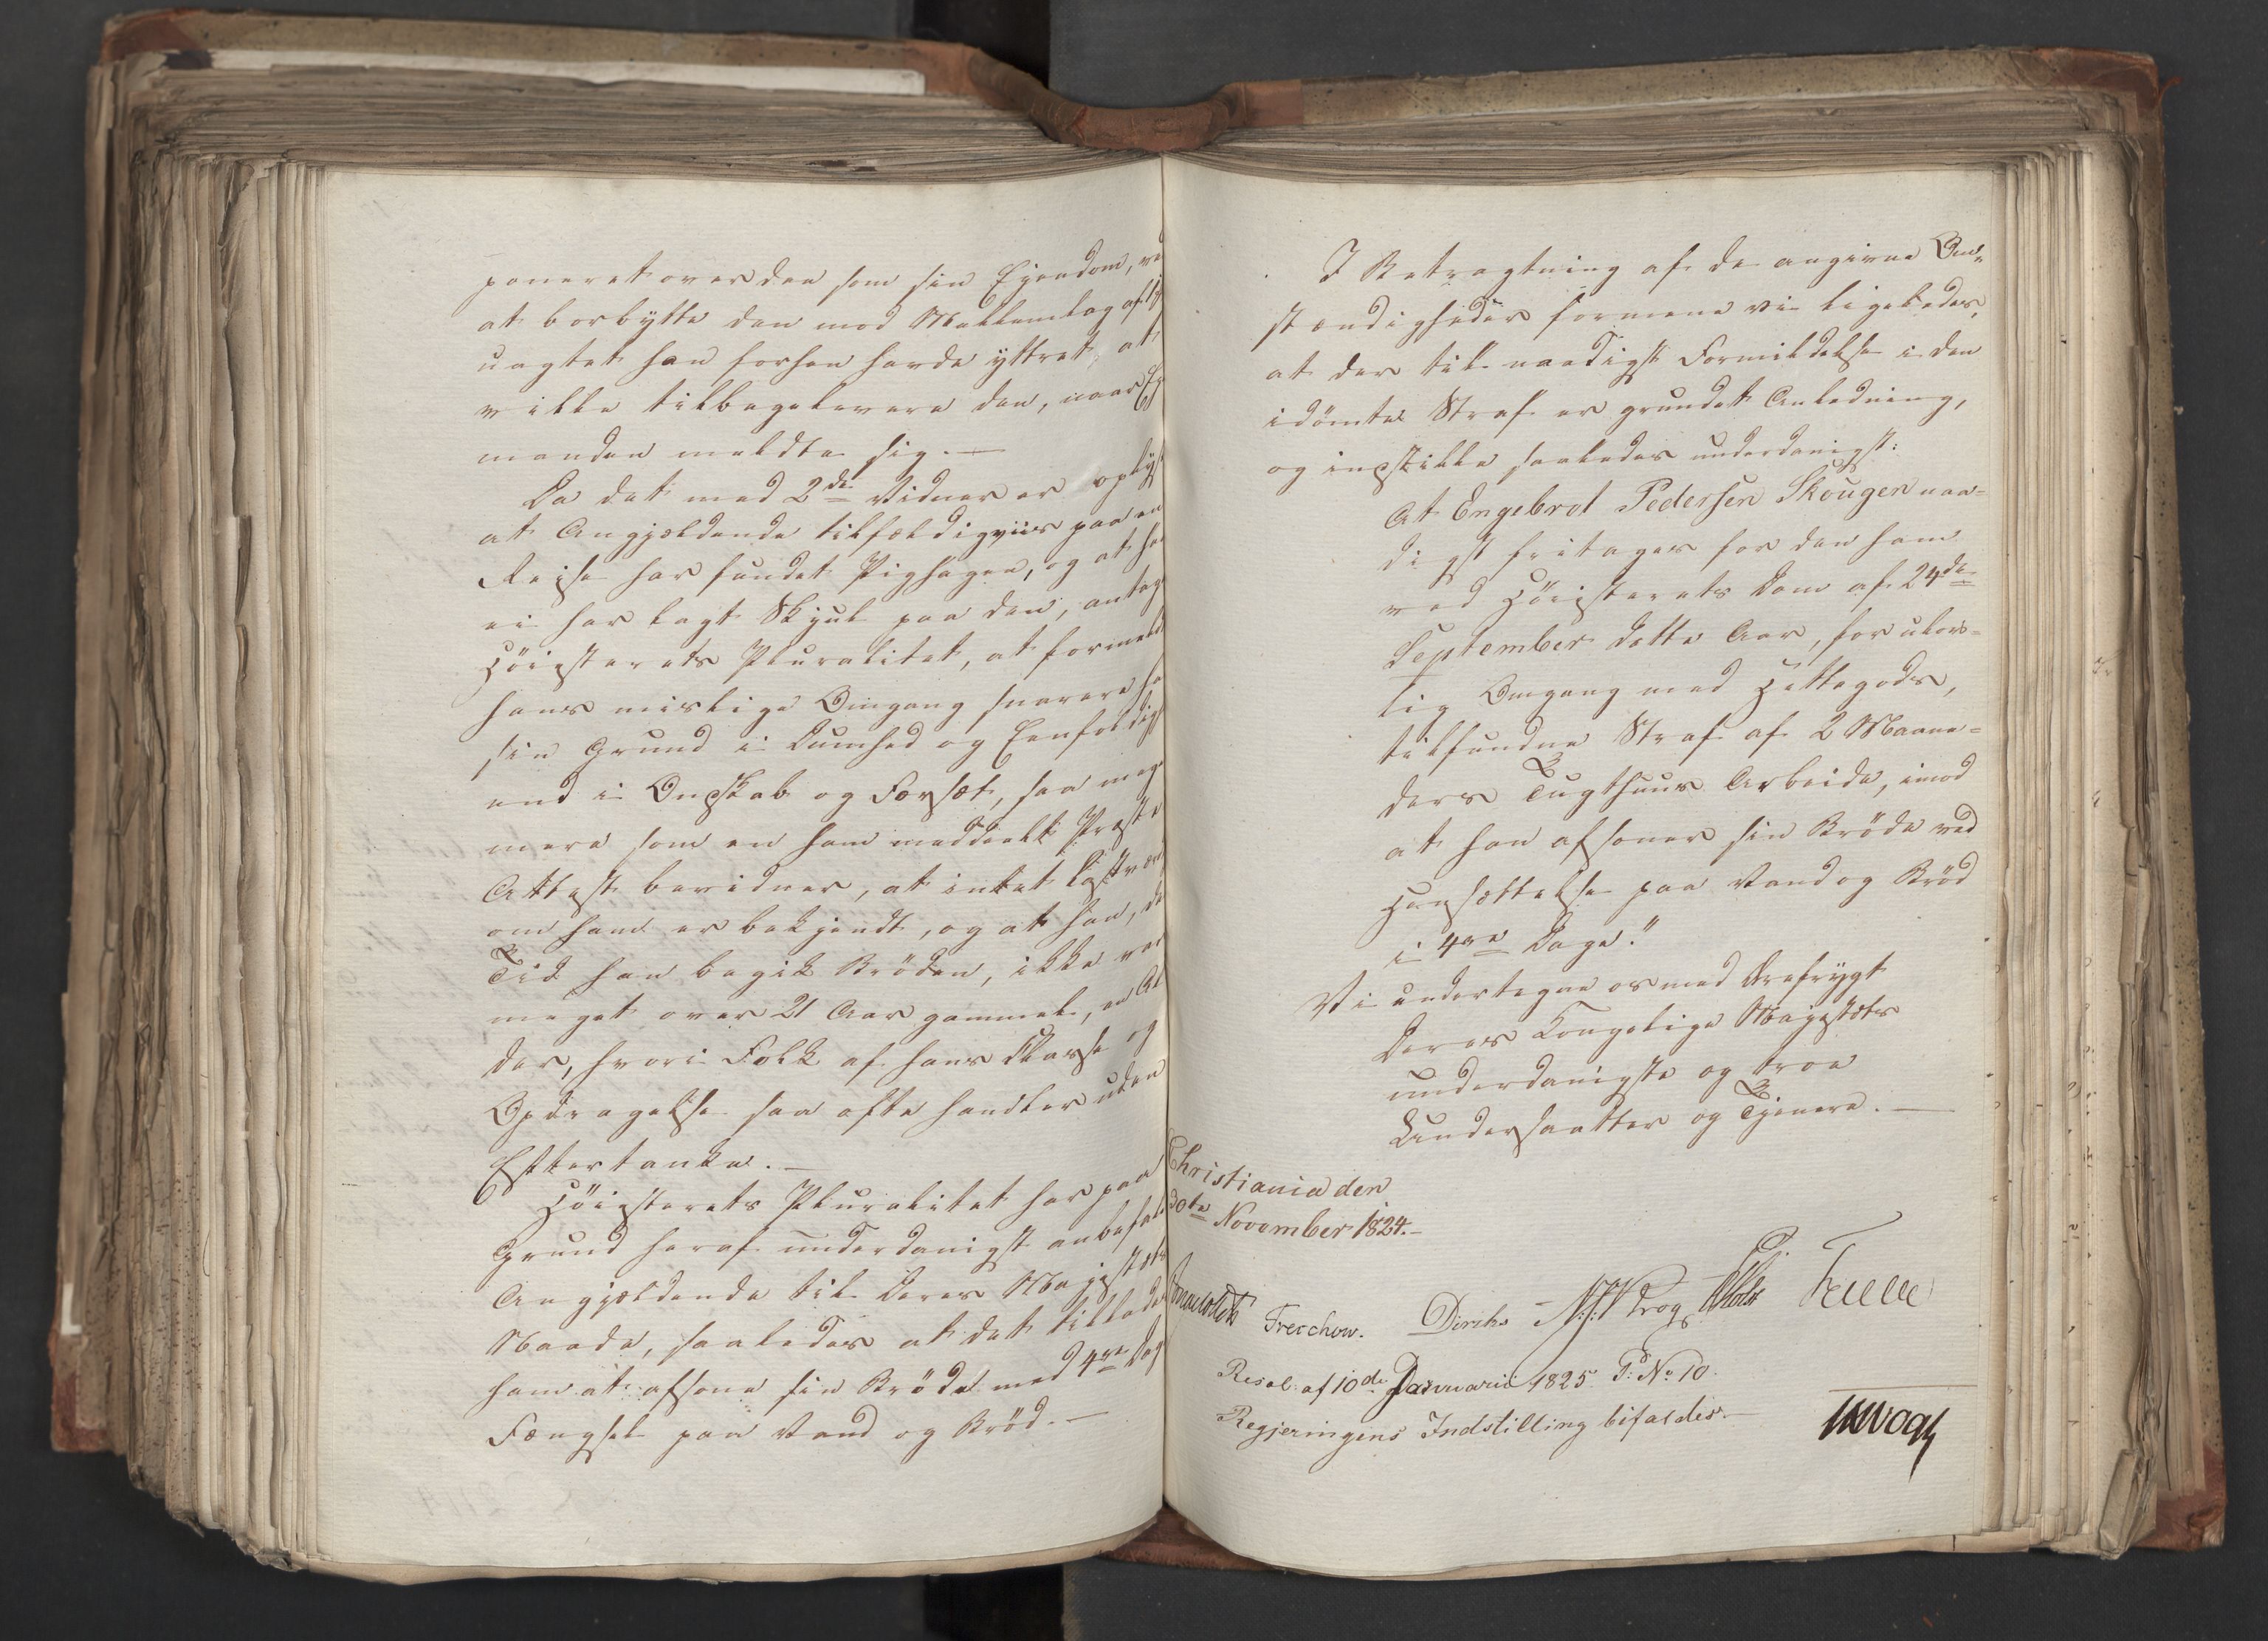 poneret over den som sin Ejendom, ved
at bortbytte den mod Mellemlag af 1
uagtet han forhen havde yttret, at
ville tilbagelevere den, naar Ej
manden meldte sig. —
Da det med 2de Vidner er oplyst
at Angjældende tilfældigviis paa en
Reise har fundet Pighagen, og at han
ei har lagt Skjul paa den, antag
Höiesterets Pluralitet, at formeld
hans mislige Omgang snarere ha
sin Grund i Dumhed og Eenfoldigh
end i Ondskab og Forsæt, saa meget
mere som en ham meddeelt Præste
Attest bevidner, at intet Lastvær
om ham er bekjendt, og at han, da
Tid han begik Bröden, ikke var
meget over 21 Aar gammel, en Al
der, hvori Folk af hans Classe og
Opdragelse saa ofte handler uden
Eftertanke. —
Höiesterets Pluralitet har paa
Grund heraf underdanigst anbefalet
Angjældende til Deres Majestæts
Naade, saaledes at det tillades
ham at afsone sin Bröde med 4re Dag
Fængsel paa Vand og Bröd. —
I Betragtning af de angivne Om-
stændigheder formene vi ligeledes,
at der til naadigst Formildelse i den
idömte Straf er grundet Anledning,
og indstille saaledes underdanigst:
At Engebret Pedersen Skougen naa-
digst fritages for den ham
ved Höiesterets Dom af 24de
September dette Aar, for ulov-
lig Omgang med Hittegods,
tilfundne Straf af 2 Maane-
ders Tugthuus Arbeide, imod
at han afsoner sin Bröde ved
Hensættelse paa Vand og Bröd
i 4re Dage."
Vi undertegne os med Ærefrygt
Deres Kongelige Majestæts
underdanigste og troe
Undersaatter og Tjenere. —
Christiania den
30te November 1824. —
Treschow. Diriks
Resol: af 10de Januarii 1825. P: No 10.
Regjeringens Indstilling bifaldes. —